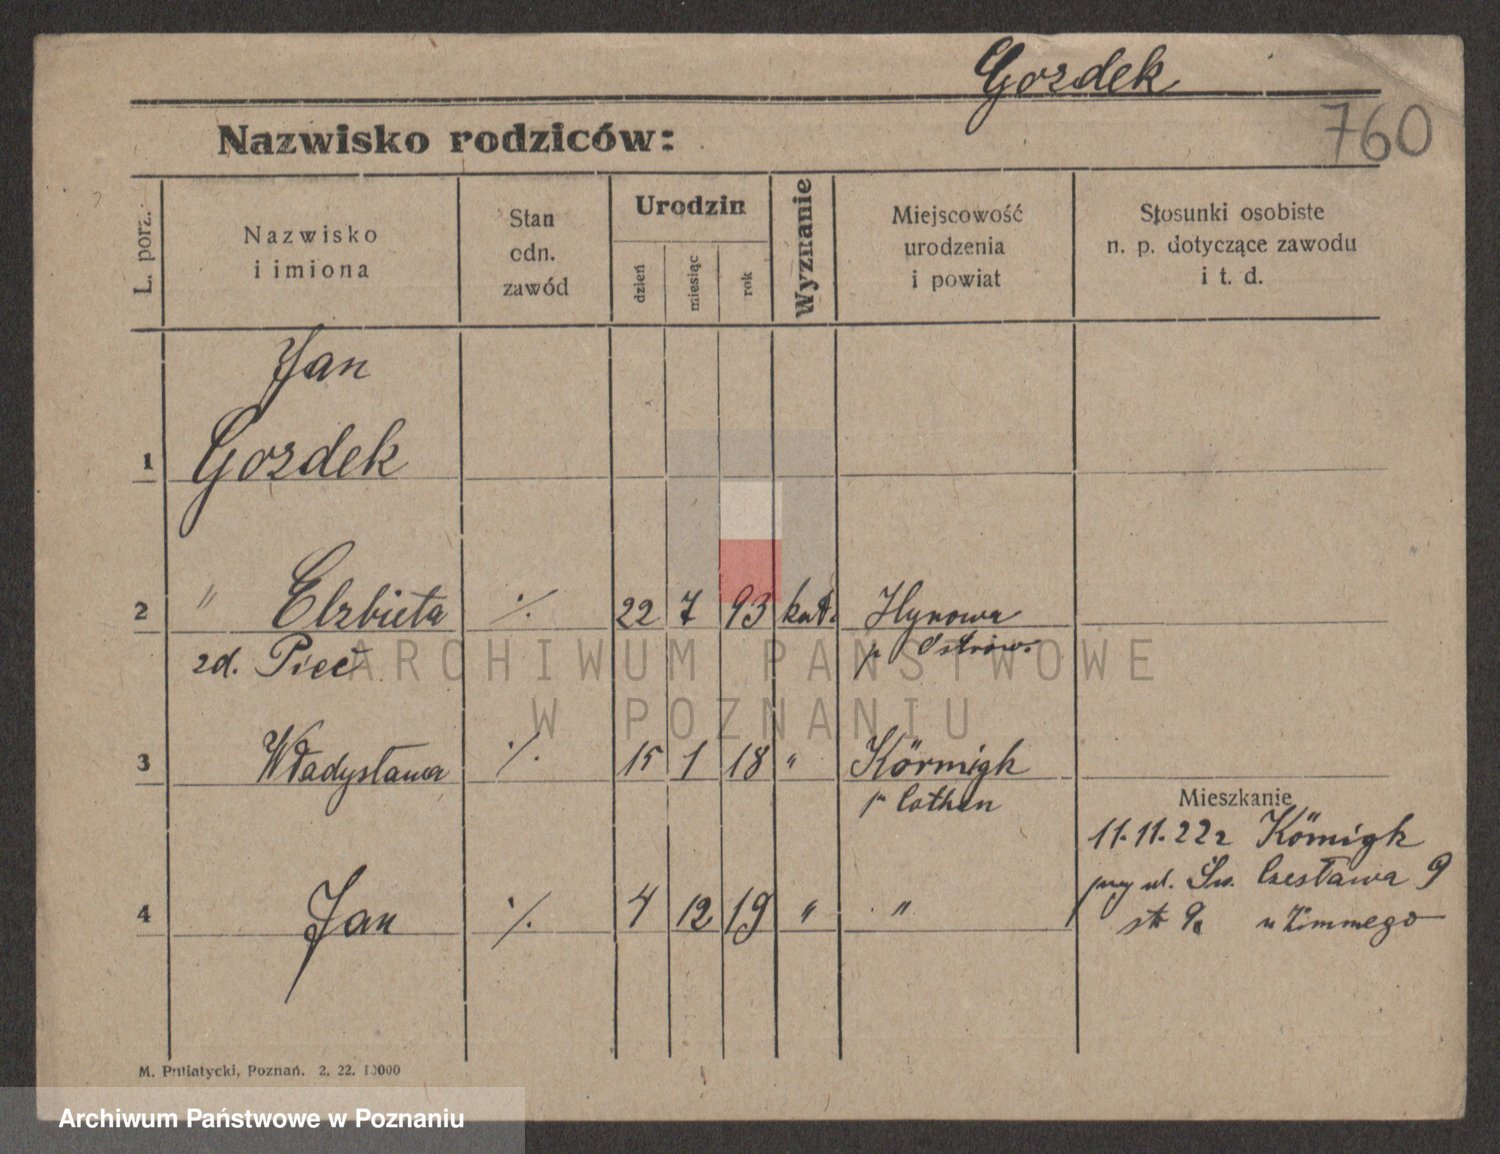 Gozdek
760
Nazwisko rodziców:
L. porz.
Nazwisko
i imiona
Stan
odn.
zawód
Urodzin
dzień
miesiąc
rok
Wyznanie
Miejscowość
urodzenia
i powiat
Stosunki osobiste
n. p. dotyczące zawodu
i t. d.
Jan
1 Gozdek
2 " Elzbieta ·/. 22 7 93 kat. Hynowa
zd. Piec p Ostrów.
3 Władysława ·/. 15 1 18 " Körmigk
p Cothen
Mieszkanie
11.11.22 r Kömigk
przy ul. Św. Czesława 9
4 Jan ·/. 4 12 19 " "
u Zimmego
M. Putiatycki, Poznań. 2. 22. 10000
ARCHIWUM PAŃSTWOWE
W POZNANIU
Archiwum Państwowe w Poznaniu